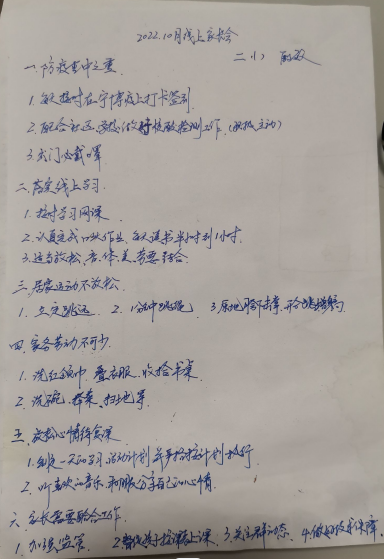 2022.10月线上家长会
二(1)
一.防疫重中之重
1.每天按时在宁搏疫上打卡签到
2.配合社区、学校做好核酸检测工作.(积极主动)
3.出门必戴口罩
二.落实线上学习
1.按时学习网课
2.认真完成口头作业,每天读书半小时到1小时.
3.适当放松,音、体、美、劳要结合.
三.居家运动不放松.
1.立定跳远. 2.1分钟跳绳 3.原地
四.家务劳动不可少.
1.洗红领巾、叠衣服、收拾书桌
2.洗碗、择菜、扫地等
五.放松心情待复课
1.制定一天的学习、活动计划并严格按计划执行
2.听喜欢的音乐,和朋友分享自己的心情.
六.家长需要配合工作.
1.加强监管 2.督促孩子按课表上课 3.关注群动态 4.做好后勤保障